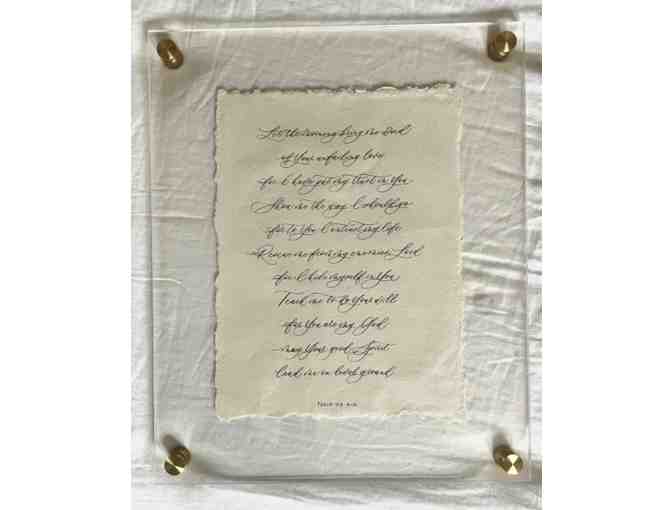 Let the morning bring me word
of Your unfailing love
for I have put my trust in You
Show me the way I should go
for to You I entrust my life
Rescue me from my enemies, Lord
for I hide myself in You
Teach me to do Your will
for You are my God
may Your good Spirit
lead me on level ground